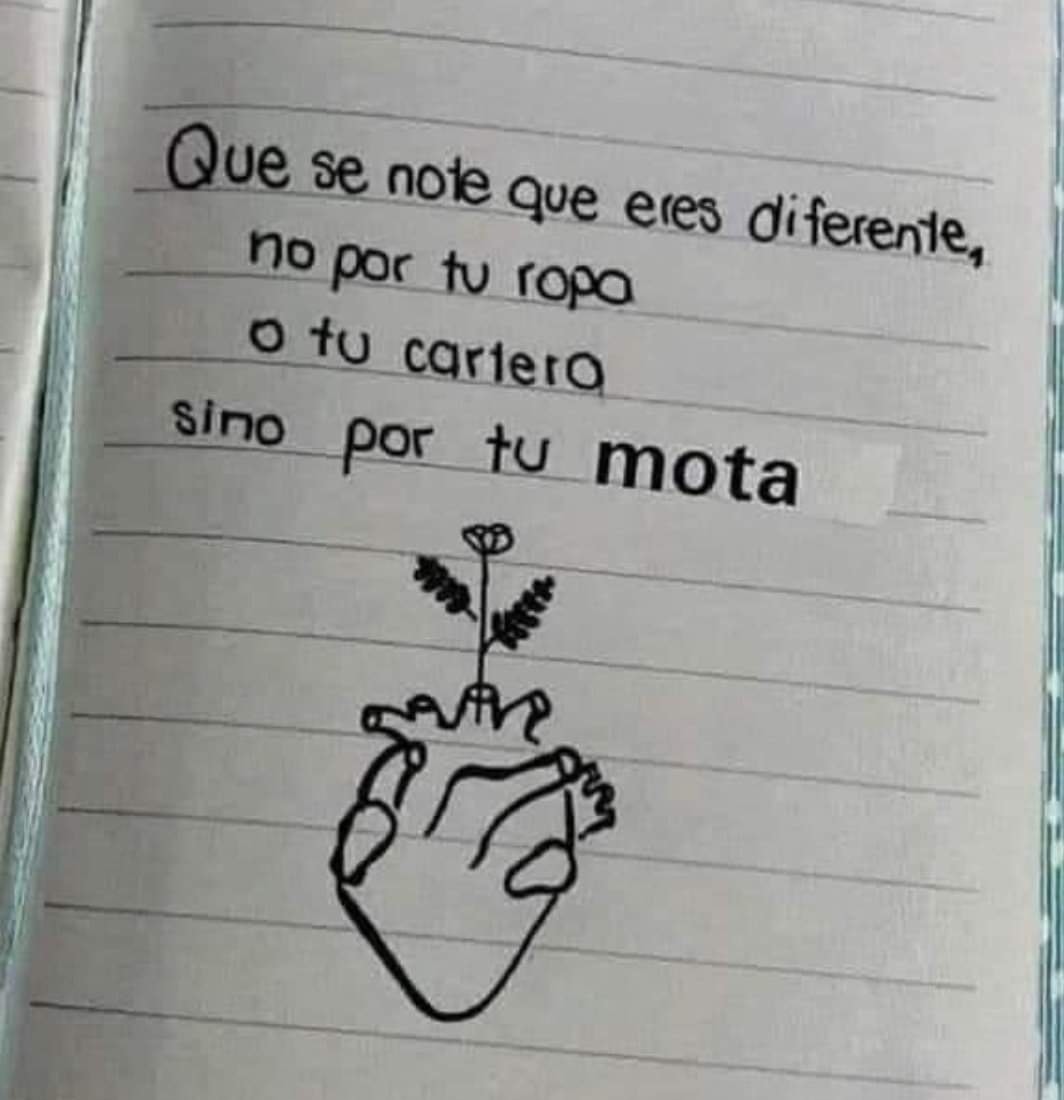 Que se note que eres diferente,
no por tu ropa
o tu cartera
sino por tu mota